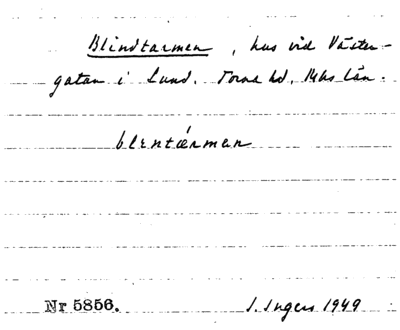 Blindtarmen, hus vid Väster-
gatan i Lund. Torna hd, Mhs län.
blɪntæ̀rmən
Nr 5856.
I. Ingers 1949